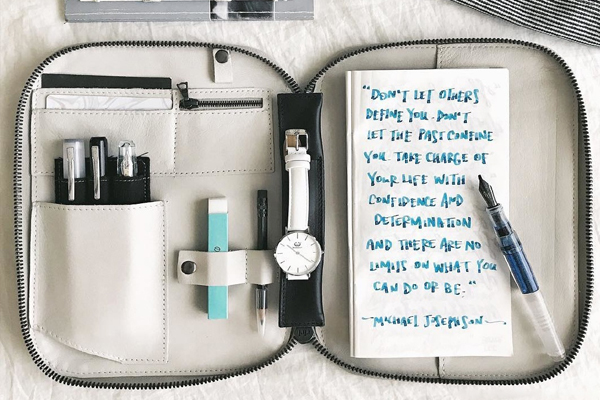 "DON'T LET OTHERS
DEFINE YOU. DON'T
LET THE PAST CONFINE
YOU. TAKE CHARGE OF
YOUR LIFE WITH
CONFIDENCE AND
DETERMINATION
AND THERE ARE NO
LIMITS ON WHAT YOU
CAN DO OR BE."
-MICHAEL JOSEPHSON-